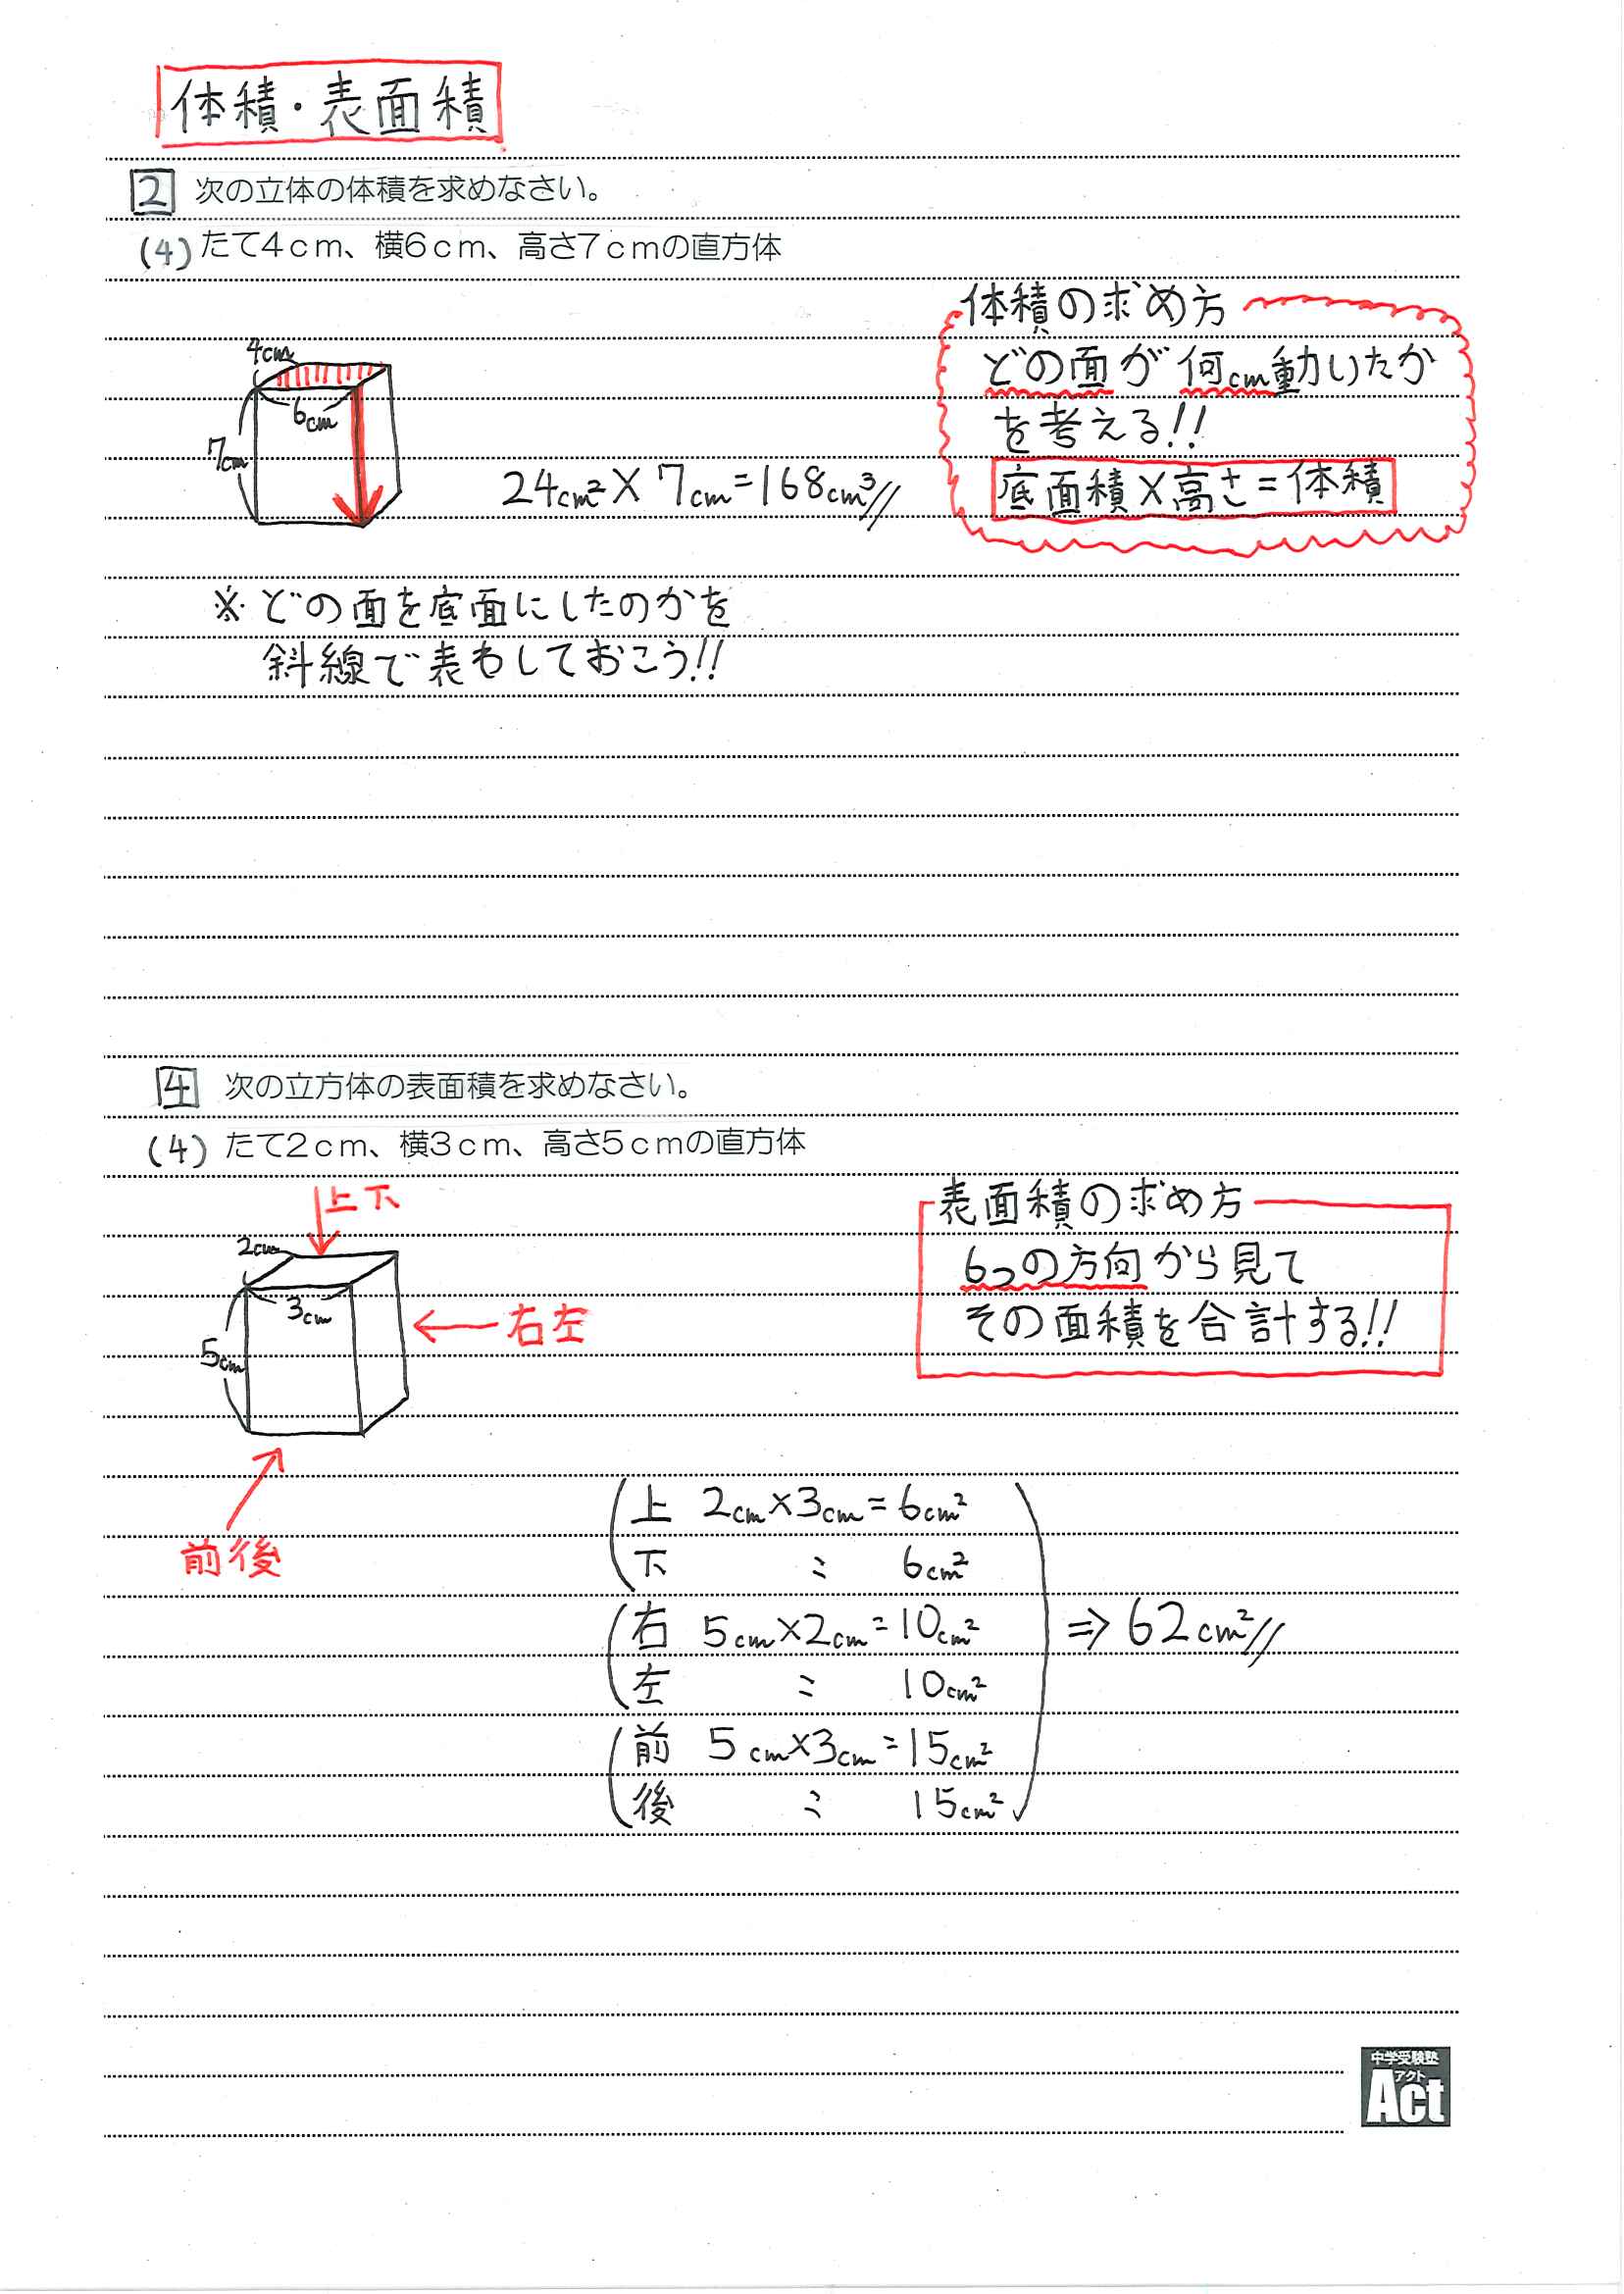 体積・表面積
2 次の立体の体積を求めなさい。
(4) たて4cm、横6cm、高さ7cmの直方体
体積の求め方
どの面が何cm動いたか
を考える!!
底面積×高さ=体積
4cm
6cm
7cm
24cm²×7cm=168cm³
※どの面を底面にしたのかを
斜線で表わしておこう!!
4 次の立方体の表面積を求めなさい。
(4) たて2cm、横3cm、高さ5cmの直方体
表面積の求め方
6つの方向から見て
その面積を合計する!!
上下
2cm
3cm
右左
5cm
前後
上 2cm×3cm=6cm²
下 〃 6cm²
右 5cm×2cm=10cm²
左 〃 10cm²
前 5cm×3cm=15cm²
後 〃 15cm²
⇒62cm²
中学受験塾
アクト
Act